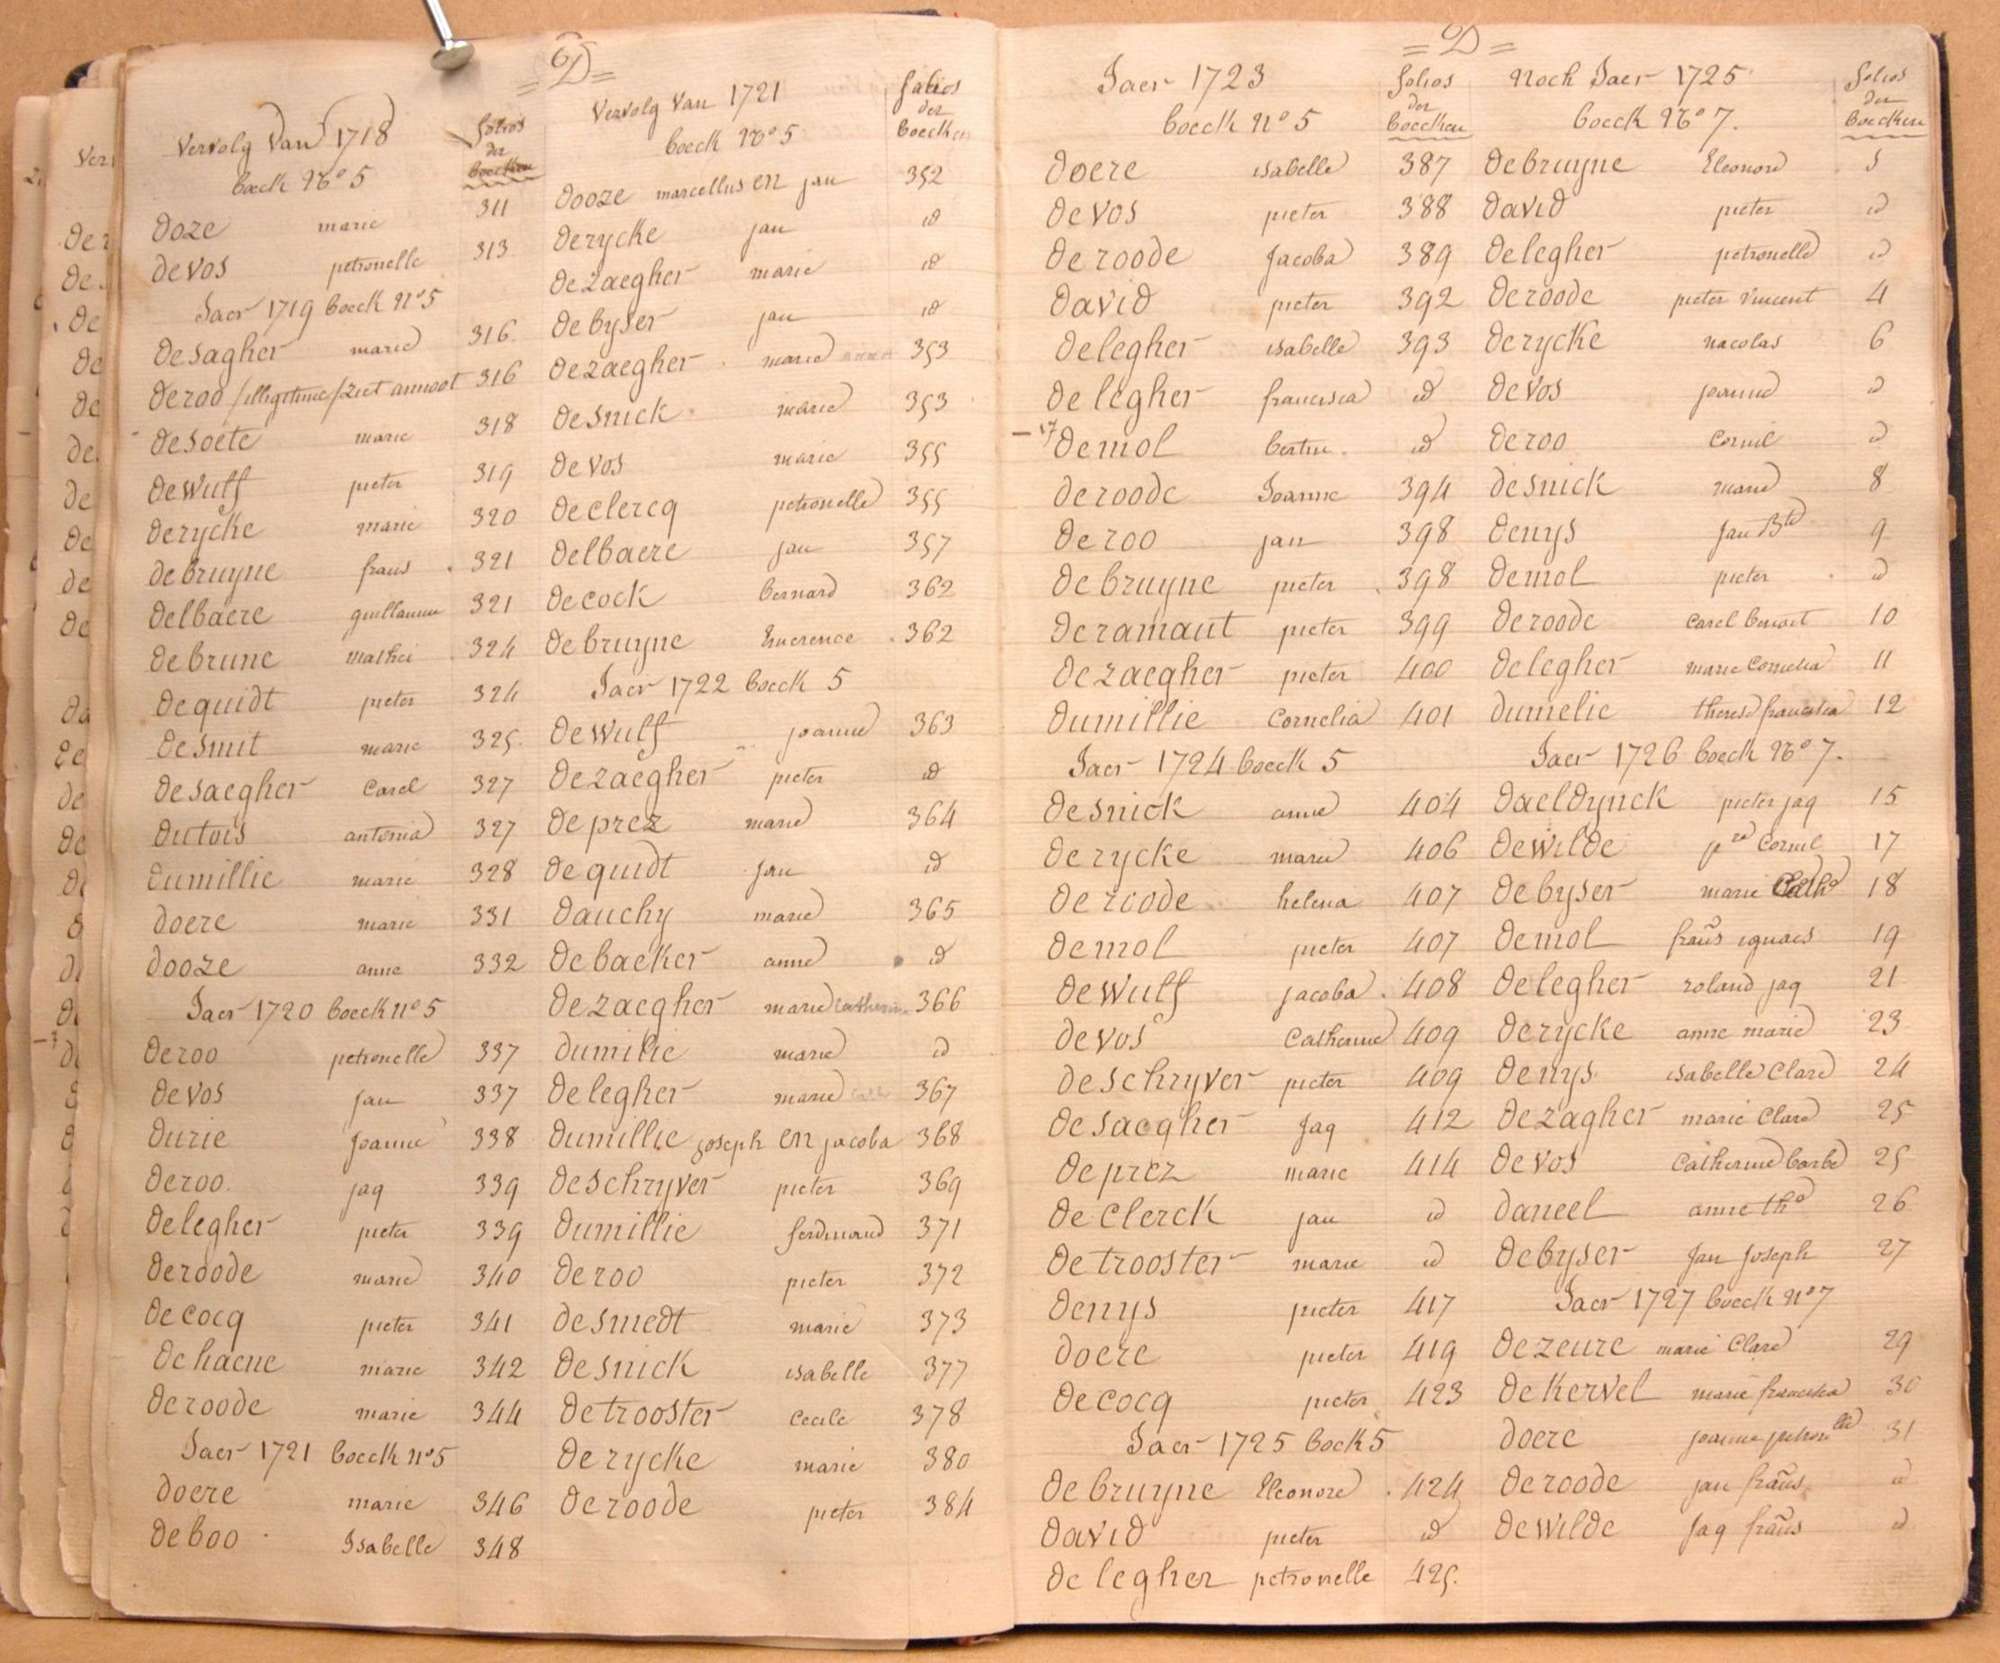 = D =
Vervolg van 1718
boeck No 5
folios
der
boecken
doze marie 311
devos petronelle 313
Jaer 1719 boeck no 5
desagher marie 316
deroo /illegitime/ziet annoot 316
desoete marie 318
dewulf pieter 319
derycke marie 320
debruyne frans 321
delbaere guillaume 321
debrune mathei 324
dequidt pieter 324
desmit marie 325
desaegher Carel 327
dutois antonia 327
dumillie marie 328
doere marie 331
dooze anne 332
Jaer 1720 boeck no 5
deroo petronelle 337
devos jan 337
durie Joanne 338
deroo jaq 339
delegher pieter 339
deroode marie 340
decocq pieter 341
dehaene marie 342
deroode marie 344
Jaer 1721 boeck no 5
doere marie 346
deboo Isabelle 348
Vervolg van 1721
boeck No 5
folios
der
boecken
dooze marcellus en jan 352
derycke jan id
dezaegher marie id
debyser jan id
dezaegher marie 353
desnick marie 353
devos marie 355
declercq petronelle 355
delbaere jan 357
decock bernard 362
debruyne 362
Jaer 1722 boeck 5
dewulf joanne 363
dezaegher pieter id
deprez marie 364
dequidt jan id
dauchy marie 365
debacker anne id
dezaegher marie Catherine 366
dumilie marie id
delegher marie 367
dumillie joseph en jacoba 368
deschryver pieter 369
dumillie ferdinand 371
deroo pieter 372
desmedt marie 373
desnick isabelle 377
detrooster Cecile 378
derycke marie 380
deroode pieter 384
= D =
Jaer 1723
boeck no 5
folios
der
boecken
doere isabelle 387
devos pieter 388
deroode Jacoba 389
david pieter 392
delegher isabelle 393
delegher francisca id
demol bertin id
deroode Joanne 394
deroo jan 398
debruyne pieter 398
deramaut pieter 399
dezaegher pieter 400
dumillie Cornelia 401
Jaer 1724 boeck 5
desnick anne 404
derycke marie 406
deroode helena 407
demol pieter 407
dewulf jacoba 408
devos Catherine 409
deschryver pieter 409
desaegher jaq 412
deprez marie 414
declerck jan id
detrooster marie id
denys pieter 417
doere pieter 419
decocq pieter 423
Jaer 1725 boek 5
debruyne Eleonore 424
david pieter id
delegher petronelle 425.
Noch Jaer 1725
boeck No 7.
folios
der
boecken
debruyne Eleonore 3
david pieter id
delegher petronelle id
deroode pieter vincent 4
derycke nacolas 6
devos joanne id
deroo Cornil id
desnick marie 8
denys jan Bte 9
demol pieter id
deroode Carel benoit 10
delegher marie Cornelia 11
dumelie therese francisca 12
Jaer 1726 boeck No 7.
daeldynck pieter jaq 15
dewilde Cornil 17
debyser marie Cathe 18
demol frañs ignaes 19
delegher roland jaq 21
derycke anne marie 23
denys isabelle Clare 24
dezagher marie Clare 25
devos Catherine barbe 25
daneel anne the 26
debyser Jan Joseph 27
Jaer 1727 boeck no 7
dezeure marie Clare 29
dekervel marie francisca 30
doere joanne petronelle 31
deroode jan frañs id
dewilde Jaq frañs id